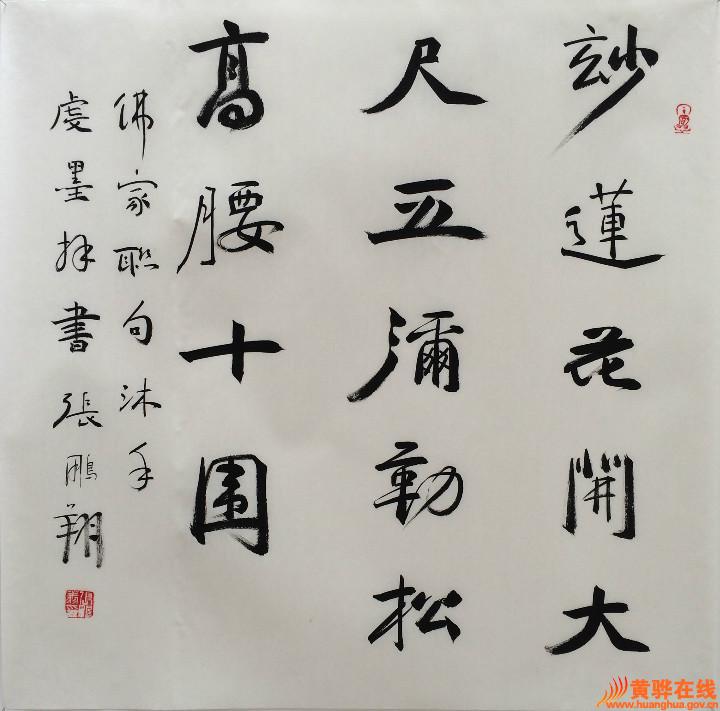 玅蓮花開大
尺五彌勒松
高腰十围
佛家联句沐手
虔墨拜書張鵬翔
黄骅在线
www.huanghua.gov.cn